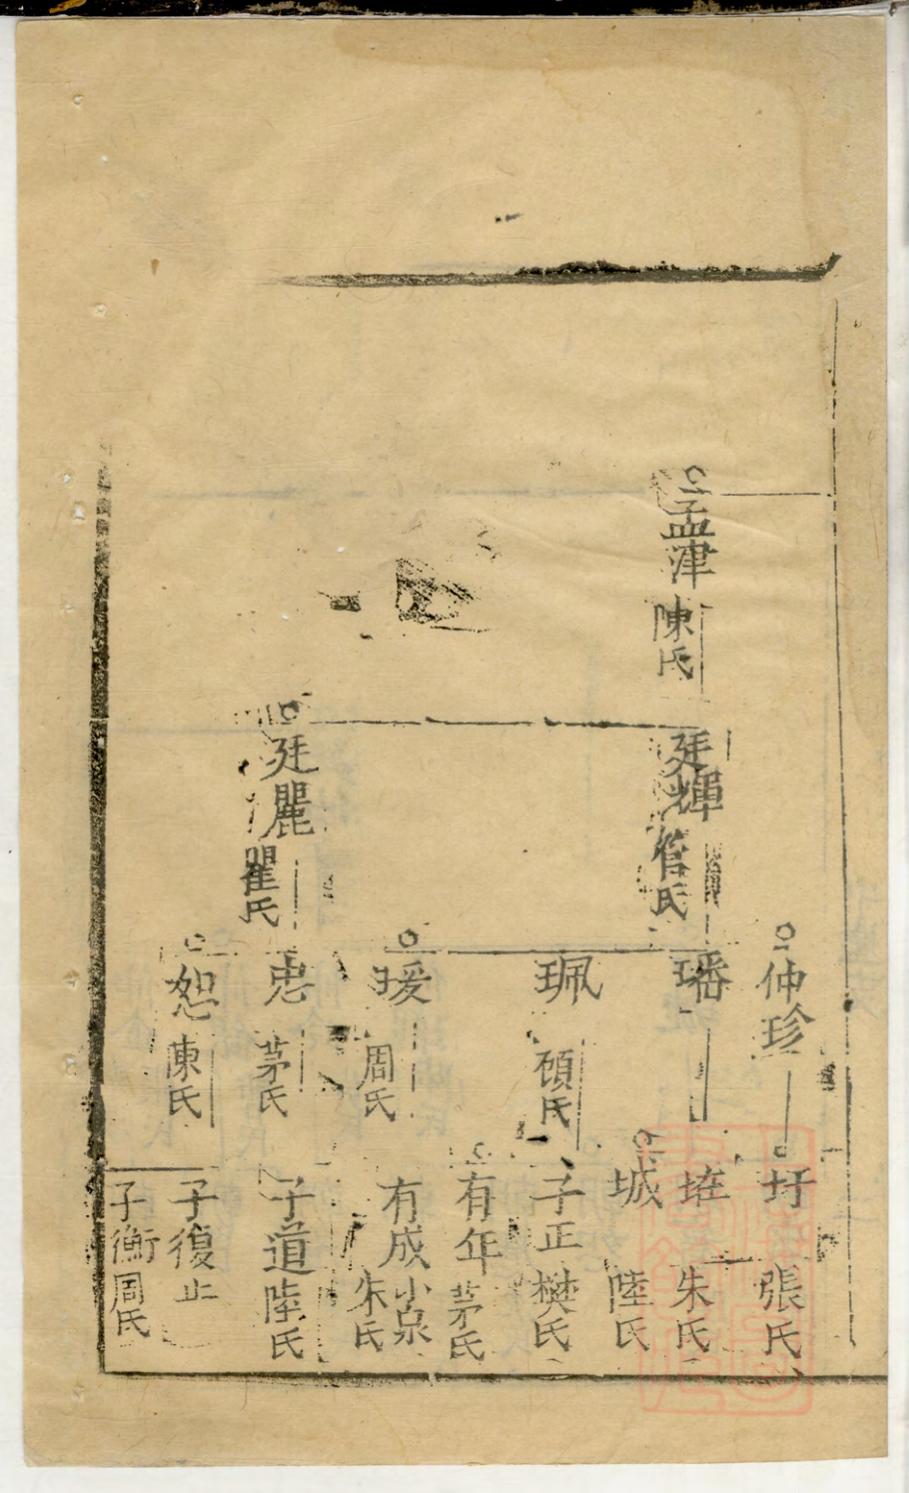 孟津 陳氏
廷輝 管氏
廷麗 瞿氏
仲珍
璠
珮 顧氏
瑗 周氏
忠 茅氏
恕 陳氏
圩 張氏
朱氏
城 陸氏
子正 樊氏
有年 茅氏
有成 小泉 朱氏
子道 陸氏
子復 止
子衡 周氏